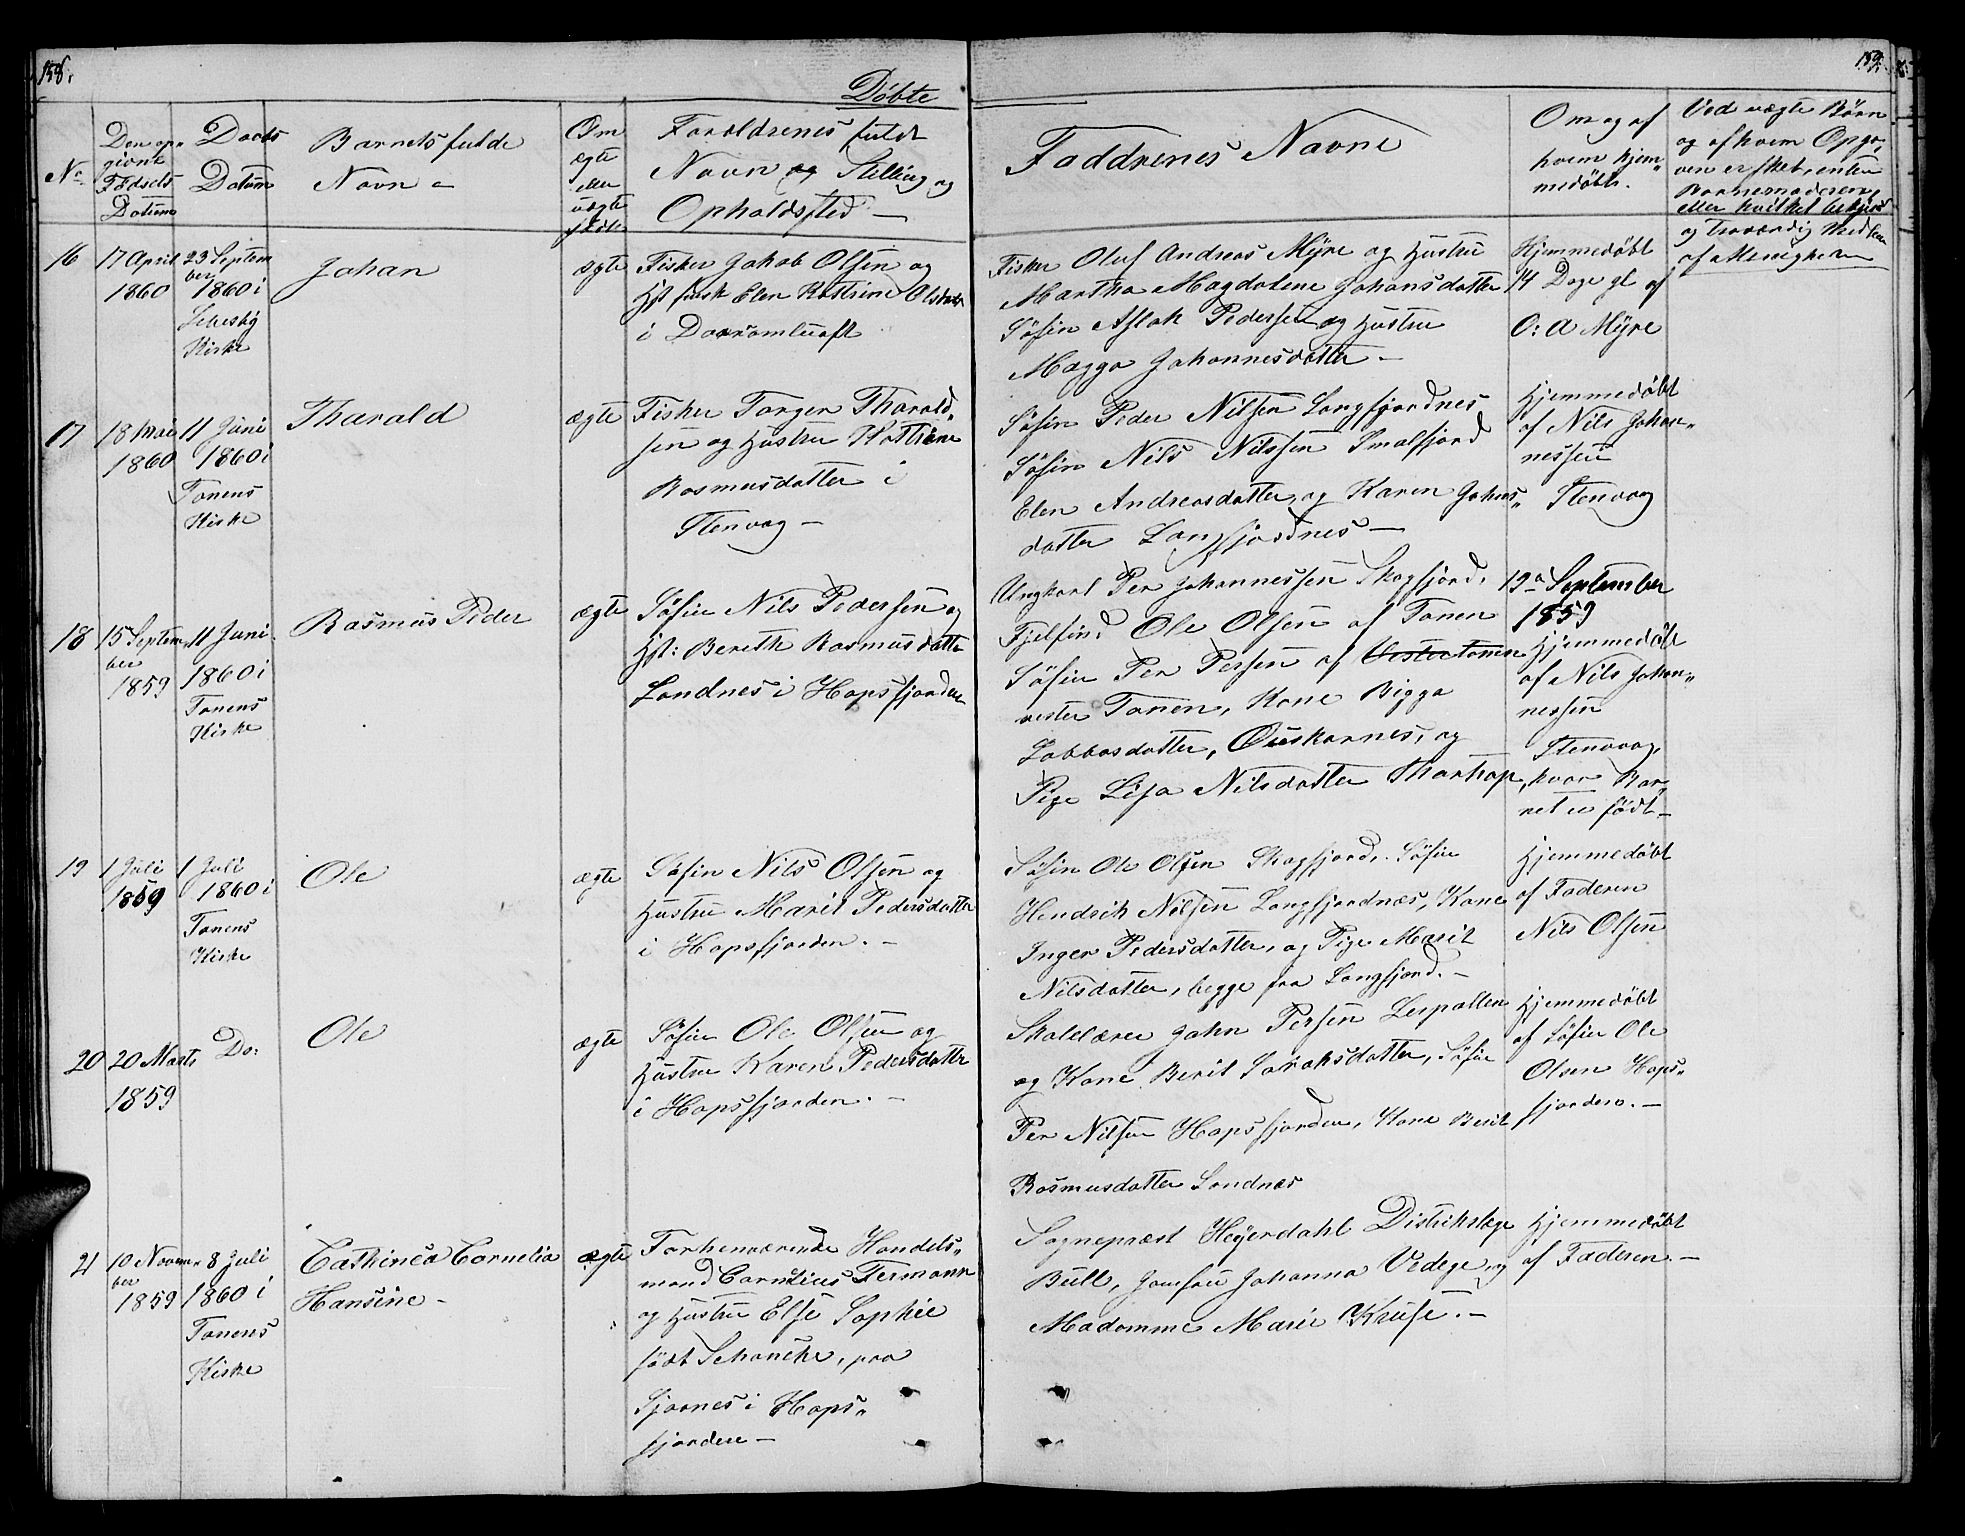 158.
Døbte
159.
No
Den op-
givne
Fødsels
Datum
Daabs
Datum
Barnets fulde
Navn
Om
ægte
eller
uægte
født
Forældrenes fuldt
Navn og Stilling og
Opholdsted
Faddrenes Navne
Om og af
hvem hjem-
medøbt.
Ved uægte Børn
og af hvem Opga-
ven er sket, enten
Barnemoderen,
eller hvilket
og troværdig Medlem
af Menigheden
16
17 April
1860
23 Septem
ber
1860 i
Lebesby
Kirke
Johan
ægte
Fisker Jakob Olsen og
Hst Elen Kattrine Olsdatter
i
Fisker Oluf Andreas Myre og Hustru
Martha Magdalene Johansdatter
Søfin Aslak Pedersen og Hustru
Magga Johannesdatter
Hjemmedøbt
14 Dage gl af
O: A Myre
17
18 Mai
1860
11 Juni
1860 i
Tanens
Kirke
Tharald
ægte
Fisker Torger Tharald„
sen og Hustru Kattrine
Rasmusdatter i
Stenvag
Søfin Peder Nilsen Langfjordnes
Søfin Nils Nilssen Smalfjord
Elen Andreasdatter, og Karen Johns„
datter Langfjordnes
Hjemmedøbt
af Nils Johan„
nessen
Stenvag
18
15 Septem„
ber
1859
11 Juni
1860 i
Tanens
Kirke
Rasmus Peder
ægte
Søfin Nils Pedersen og
Hst: Bereth Rasmusdatter
Landnes i Hopsfjorden
Ungkarl Per Johannessen Skogfjord,
Fjelfind Ole Olsen af Tanen
Søfin Per Persen af Vestertanen
vester Tanen, Kone Bigga
Labbasdatter, Ouskarnes, og
Pige Lisa Nilsdatter Tharhop,
19a September
1859
Hjemmedøbt
af Nils Johan„
nessen
Stenvag,
hvor Bar„
net er født
19
1 Juli
1859
1 Juli
1860 i
Tanens
Kirke
Ole
ægte
Søfin Nils Olsen og
Hustru Marit Pedersdatter
i Hopsfjorden.
Søfin Ole Olsen Skogfjord, Søfin
Hendrik Nilsen Langfjordnæs, Kone
Inger Pedersdatter, og Pige Marit
Nilsdatter, begge fra Langfjord.
Hjemmedøbt
af Faderen
Nils Olsen
20
20 Marts
1859
Do:
Ole
ægte
Søfin Ole Olsen og
Hustru Karen Pedersdatter
i Hopsfjorden.
Skolelærer John Persen Leipollen
og Kone Berit Sarahsdatter, Søfin
Per Nilsen Hopsfjorden, Kone Berit
Rasmusdatter Landnæs
Hjemmedøbt
af Søfin Ole
Olsen Hops„
fjorden.
21
10 Novem„
ber
1859
8 Juli
1860 i
Tanens
Kirke
Cathinca Cornelia
Hansine
ægte
Forhenværende Handels„
mand Cornelius Fermann
og Hustru Else Sophie
født Schancke, paa
Sjaanes i Hops„
fjorden
Sognepræst Heyerdahl Distriktslæge
Bull, Jomfru Johanna Vedege, og
Madamme Marie Kruse.
Hjemmedøbt
af Faderen.